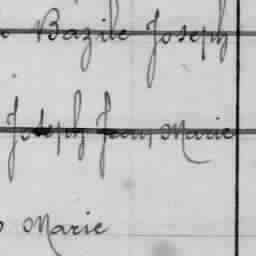 Bazile Joseph
Joseph Jean Marie
Marie